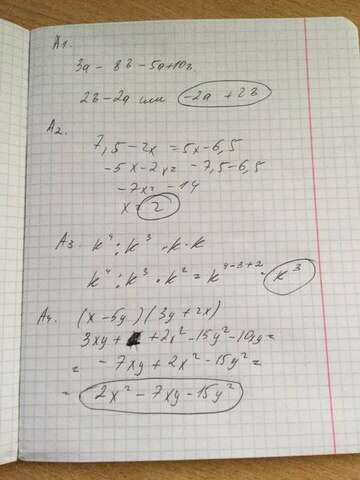 А1.
3a - 8b - 5a+10b
2b-2a или -2a + 2b
А2.
7,5-2x = 5x-6,5
-5x-2x = -7,5-6,5
-7x = -14
x = 2
А3. k⁴ : k³ · k · k
k⁴ : k³ · k² = k⁴⁻³⁺² · k³
А4. (x-5y)(3y+2x)
3xy + +2x²-15y²-10y=
= -7xy+2x²-15y²=
= 2x²-7xy-15y²